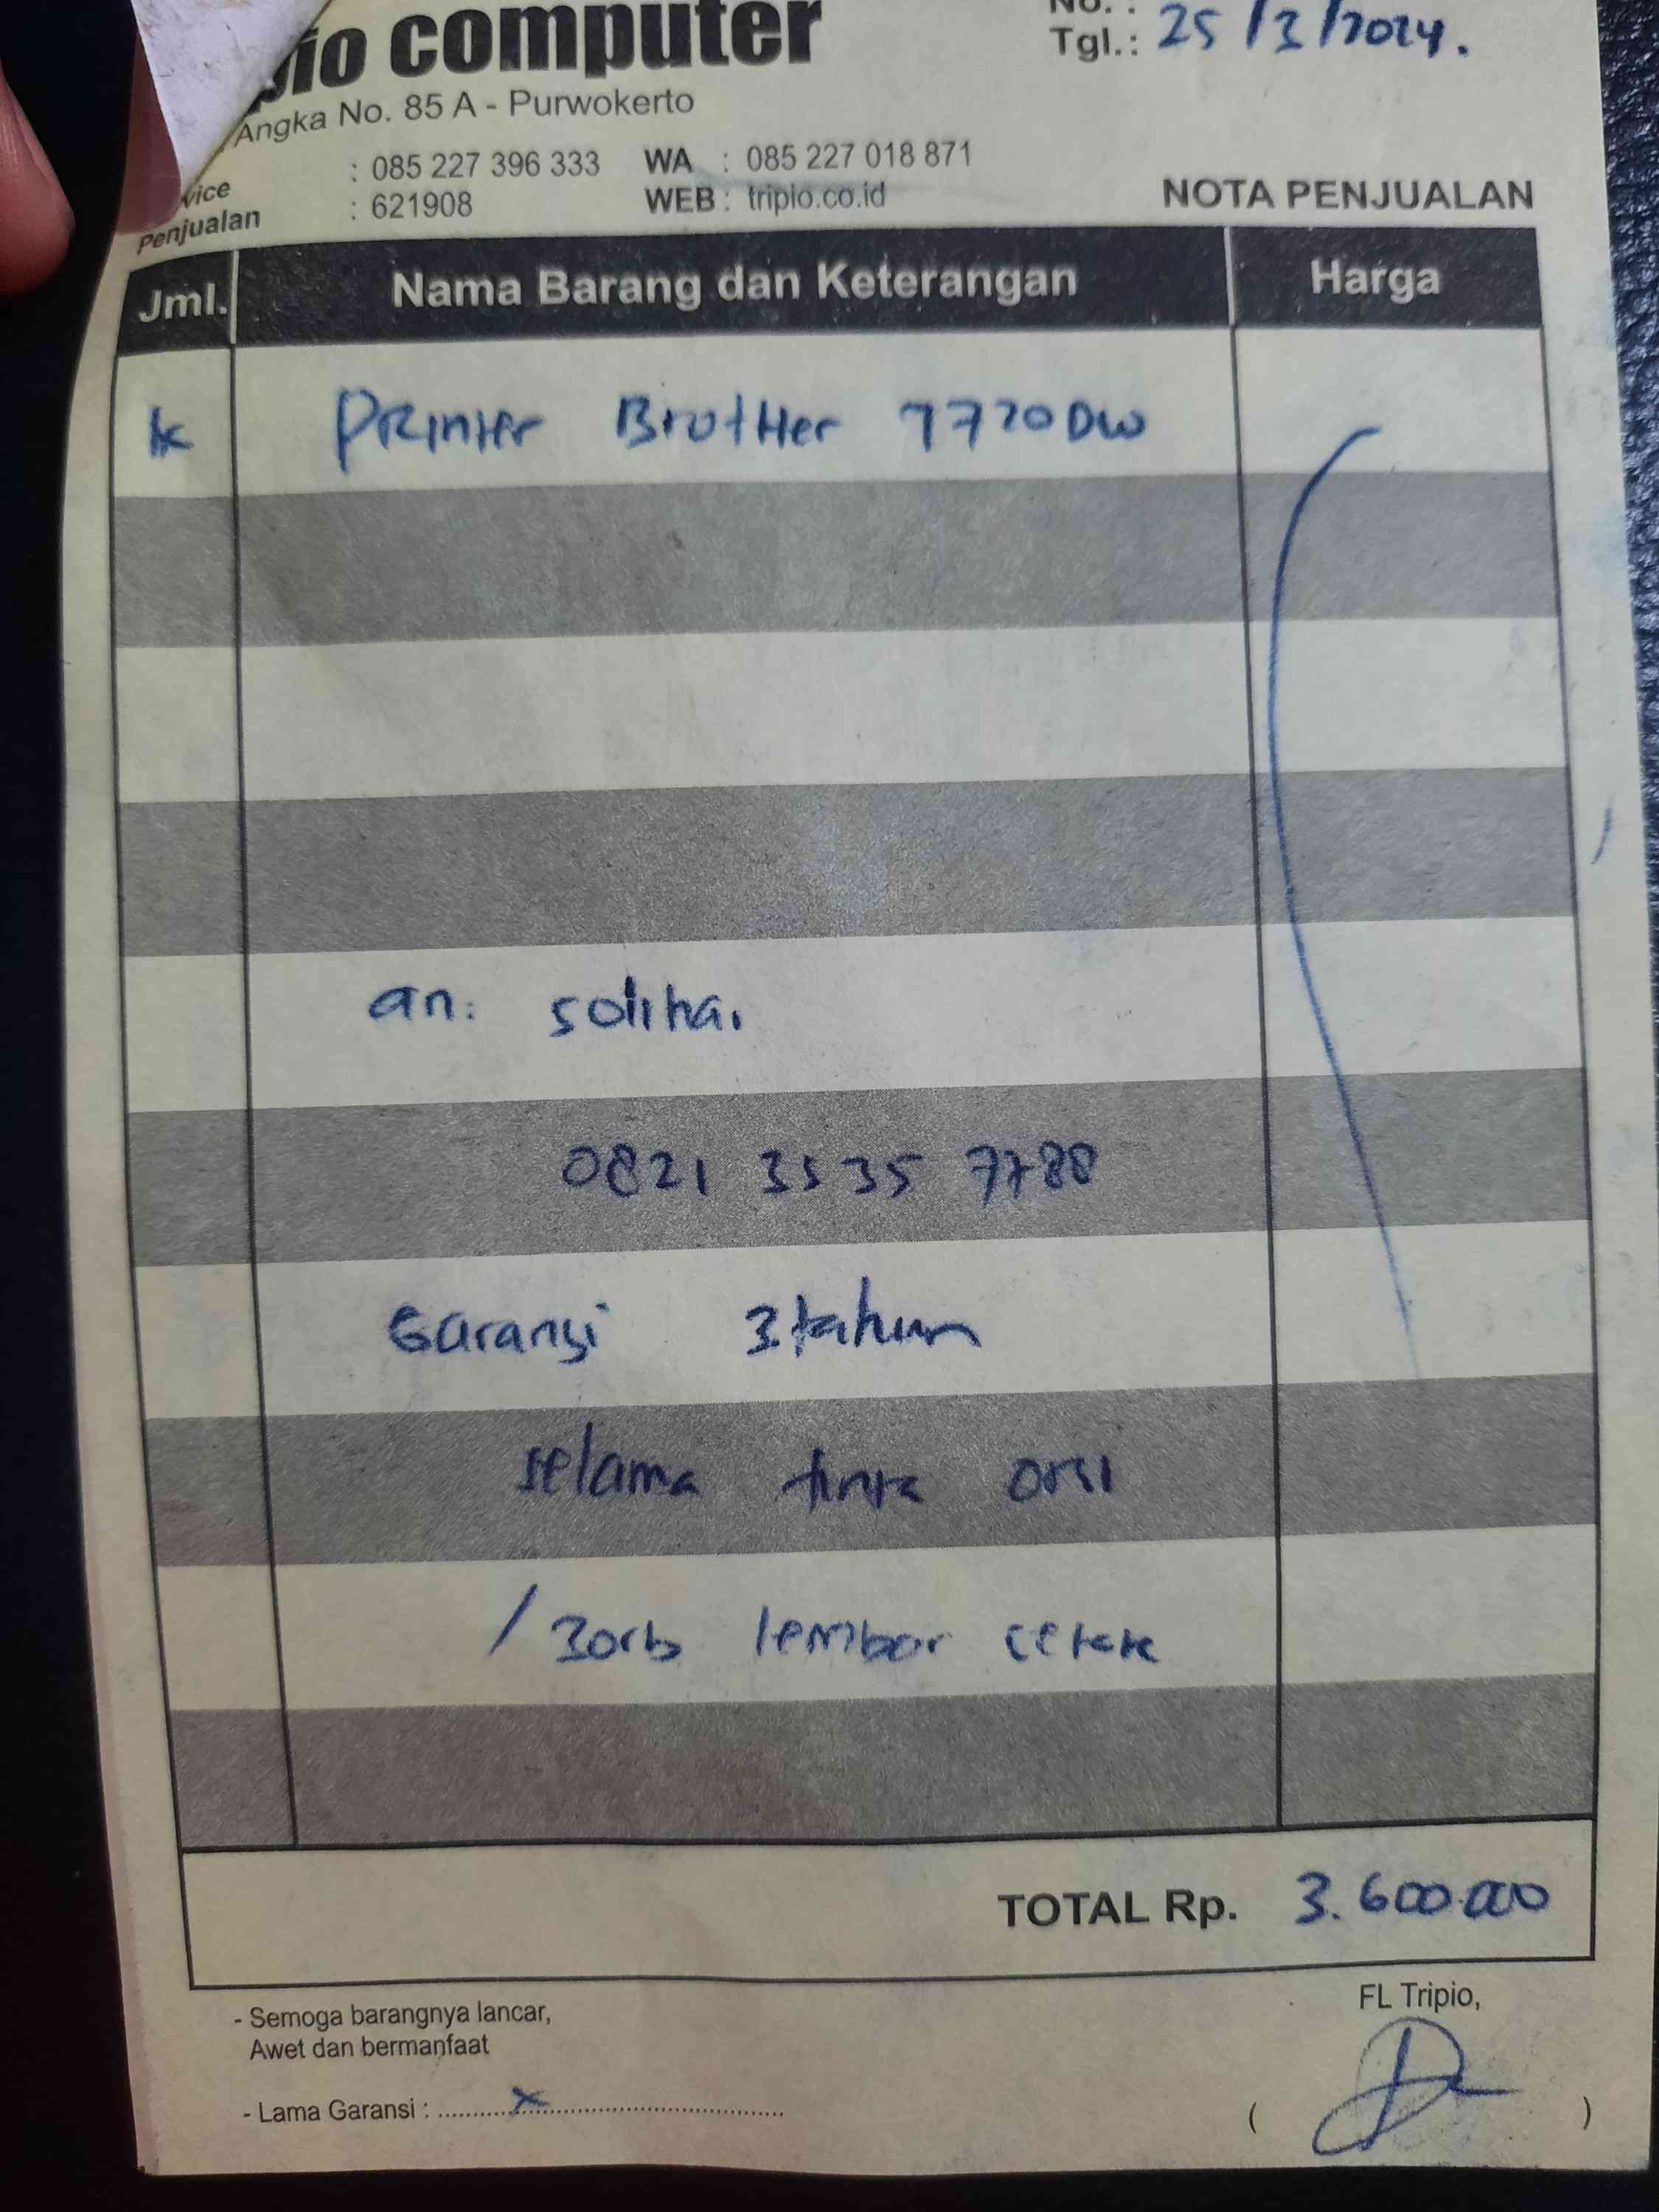 computer
No. :
Tgl.: 25/3/2024.
Angka No. 85 A - Purwokerto
: 085 227 396 333 WA : 085 227 018 871
Penjualan : 621908 WEB : tripio.co.id
NOTA PENJUALAN
Jml. Nama Barang dan Keterangan Harga
Printer Brother 7720DW
an: soliha.
0821 3535 7788
Garansi 3 tahun
selama tinta ori
/ 30rb lembar cetak
TOTAL Rp. 3.600.000
- Semoga barangnya lancar,
Awet dan bermanfaat
FL Tripio,
- Lama Garansi : x
( )